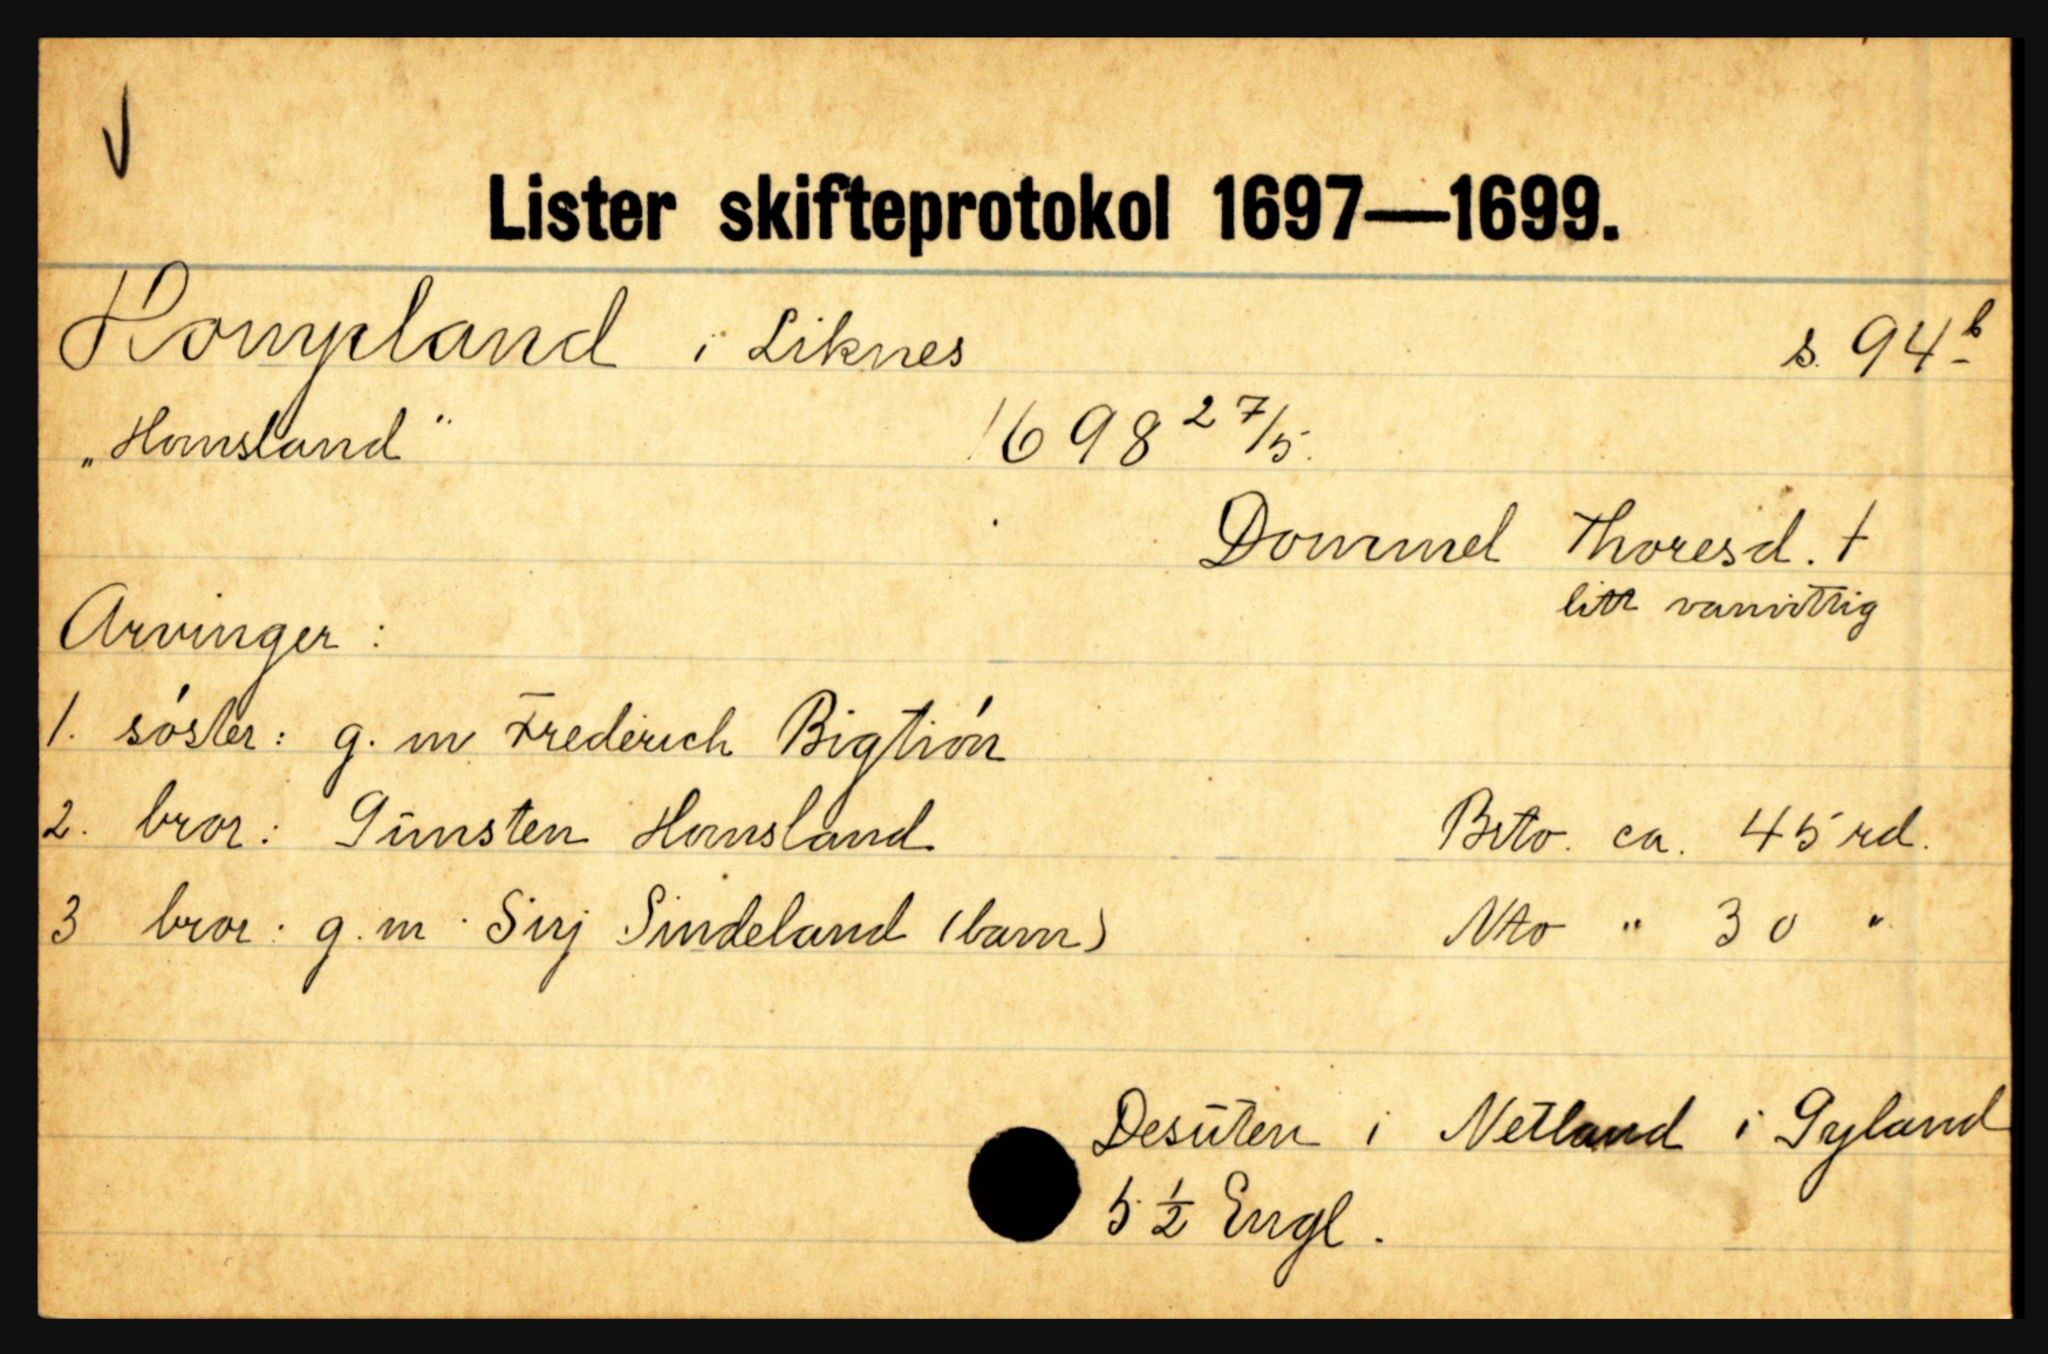 Lister skifteprotokol 1697—1699.
Kompland i Liknes s. 94b
„Homsland" 1698 27/5.
Dommel Thoresd. †
litt vanvittig
Arvinger:
1. søster: g. m Frederich Bigtión
2. bror: Gūnsten Homsland Brto. ca. 45 rd.
3 bror: g. m. Sirj Sindeland (barn) Nto " 30 "
Desūten i Netland i Gyland
5 ½ Engl.